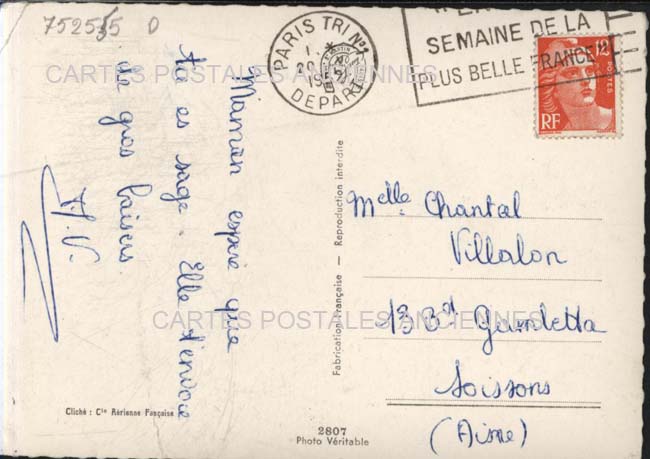 752535 D
PARIS TRI Nº1
DEPART
SEMAINE DE LA
PLUS BELLE FRANCE
12
POSTES
RF
CARTES POSTALES ANCIENNES
Maman espère que
tu es sage. Elle t'envoie
de gros baisers.
Fabrication Française - Reproduction interdite
Melle Chantal
Villalon
13 Bd Gambetta
Soissons
(Aisne)
CARTES POSTALES ANCIENNES
Cliché : Cie Aérienne Française
2807
Photo Véritable